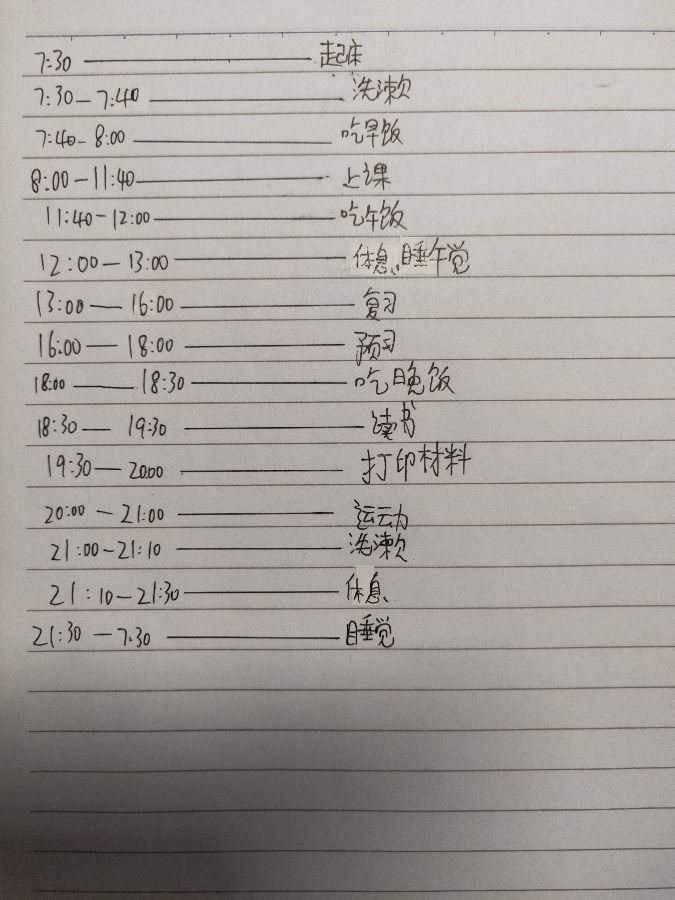 7:30 —— 起床
7:30 — 7:40 —— 洗漱
7:40 - 8:00 —— 吃早饭
8:00 — 11:40 —— 上课
11:40 - 12:00 —— 吃午饭
12:00 — 13:00 —— 休息、睡午觉
13:00 — 16:00 —— 复习
16:00 — 18:00 —— 预习
18:00 — 18:30 —— 吃晚饭
18:30 — 19:30 —— 读书
19:30 — 20:00 —— 打印材料
20:00 — 21:00 —— 运动
21:00 - 21:10 —— 洗漱
21:10 — 21:30 —— 休息、
21:30 — 7:30 —— 睡觉